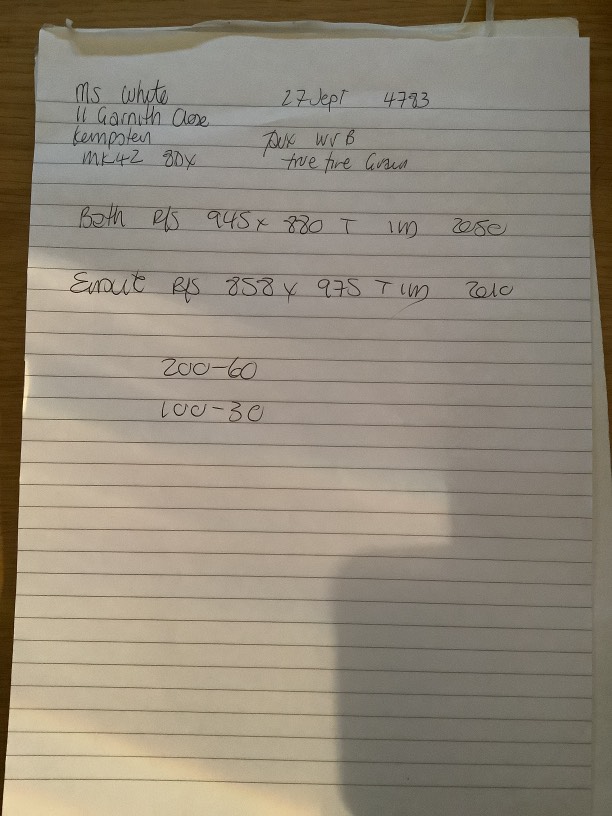 Ms White 27 Sept 4783
11 Garnith Close
Kempsten
MK42 8DX WVB
true fire Green
Both R/S 945 x 880 T 1m 2050
Ensuit R/S 858 x 975 T 1m 2010
200-60
100-30